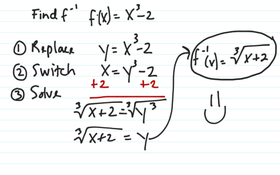 Find f⁻¹ f(x) = x³-2
① Replace y = x³-2
② Switch x = y³-2
+2 +2
③ Solve
∛x+2 = ∛y³
∛x+2 = y
f⁻¹(x) = ∛x+2